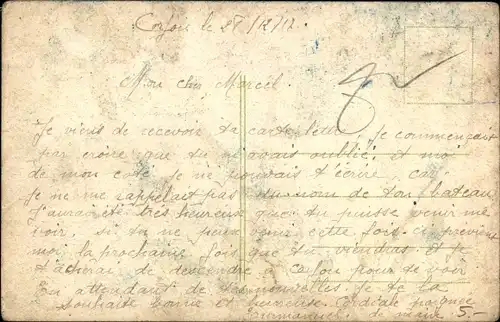 Corfou le 27/12/12
Mon cher Marcel.
Je viens de recevoir ta carte lettre, je commençait
par croire que tu m'avais oublié, et moi
de mon coté je ne pouvais t'écrire, car
je ne me rappelait pas du nom de ton bateau
J'aurai été très heureux que tu puisse venir me
voir, si tu ne peux venir cette fois-ci previens
moi la prochaine fois que tu viendras et je
tâcherai de descendre à Corfou pour te voir
En attendant de tes nouvelles. Je te la
souhaite bonne et heureuse. Cordiale
de 5.-